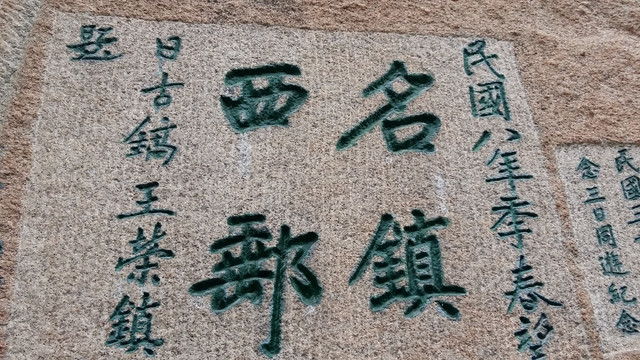 民國
念三日同遊紀念
民國八年季春望
名鎮
西郵
日古鎬王榮鎮
題